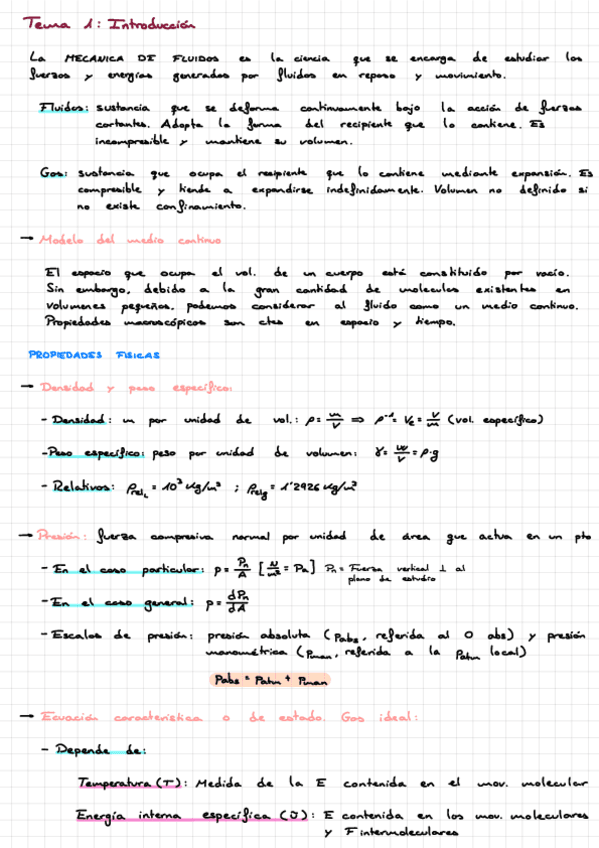 Tema 1: Introducción
La MECANICA DE FLUIDOS es la ciencia que se encarga de estudiar las
fuerzas y energías generadas por fluidos en reposo y movimiento.
Fluidos: sustancia que se deforma continuamente bajo la acción de fuerzas
cortantes. Adopta la forma del recipiente que lo contiene. Es
incompresible y mantiene su volumen.
Gas: sustancia que ocupa el recipiente que lo contiene mediante expansión. Es
compresible y tiende a expandirse indefinidamente. Volumen no definido si
no existe confinamiento.
→ Modelo del medio continuo
El espacio que ocupa el vol. de un cuerpo está constituido por vacío.
Sin embargo, debido a la gran cantidad de moleculas existentes en
volumenes pequeños, podemos considerar al fluido como un medio continuo.
Propiedades macroscópicas son ctes en espacio y tiempo.
PROPIEDADES FISICAS
→ Densidad y peso específico:
- Densidad: m por unidad de vol.: ρ = m/V ⇒ ρ⁻¹ = Ve = V/m (vol. específico)
- Peso específico: peso por unidad de volumen: γ = W/V = ρ·g
- Relativos: ρrelL = 10³ kg/m³ ; ρrelg = 1'2926 kg/m³
→ Presión: fuerza compresiva normal por unidad de área que actua en un pto
- En el caso particular: p = Pn/A [N/m² = Pa] Pn = Fuerza vertical ⊥ al
plano de estudio
- En el caso general: p = dPn/dA
- Escalas de presión: presión absoluta (Pabs, referida al 0 abs) y presión
manométrica (Pman, referida a la Patm local)
Pabs = Patm + Pman
→ Ecuación característica o de estado. Gas ideal:
- Depende de:
Temperatura (T): Medida de la E contenida en el mov. molecular
Energía interna específica (Û): E contenida en los mov. moleculares
y F intermoleculares